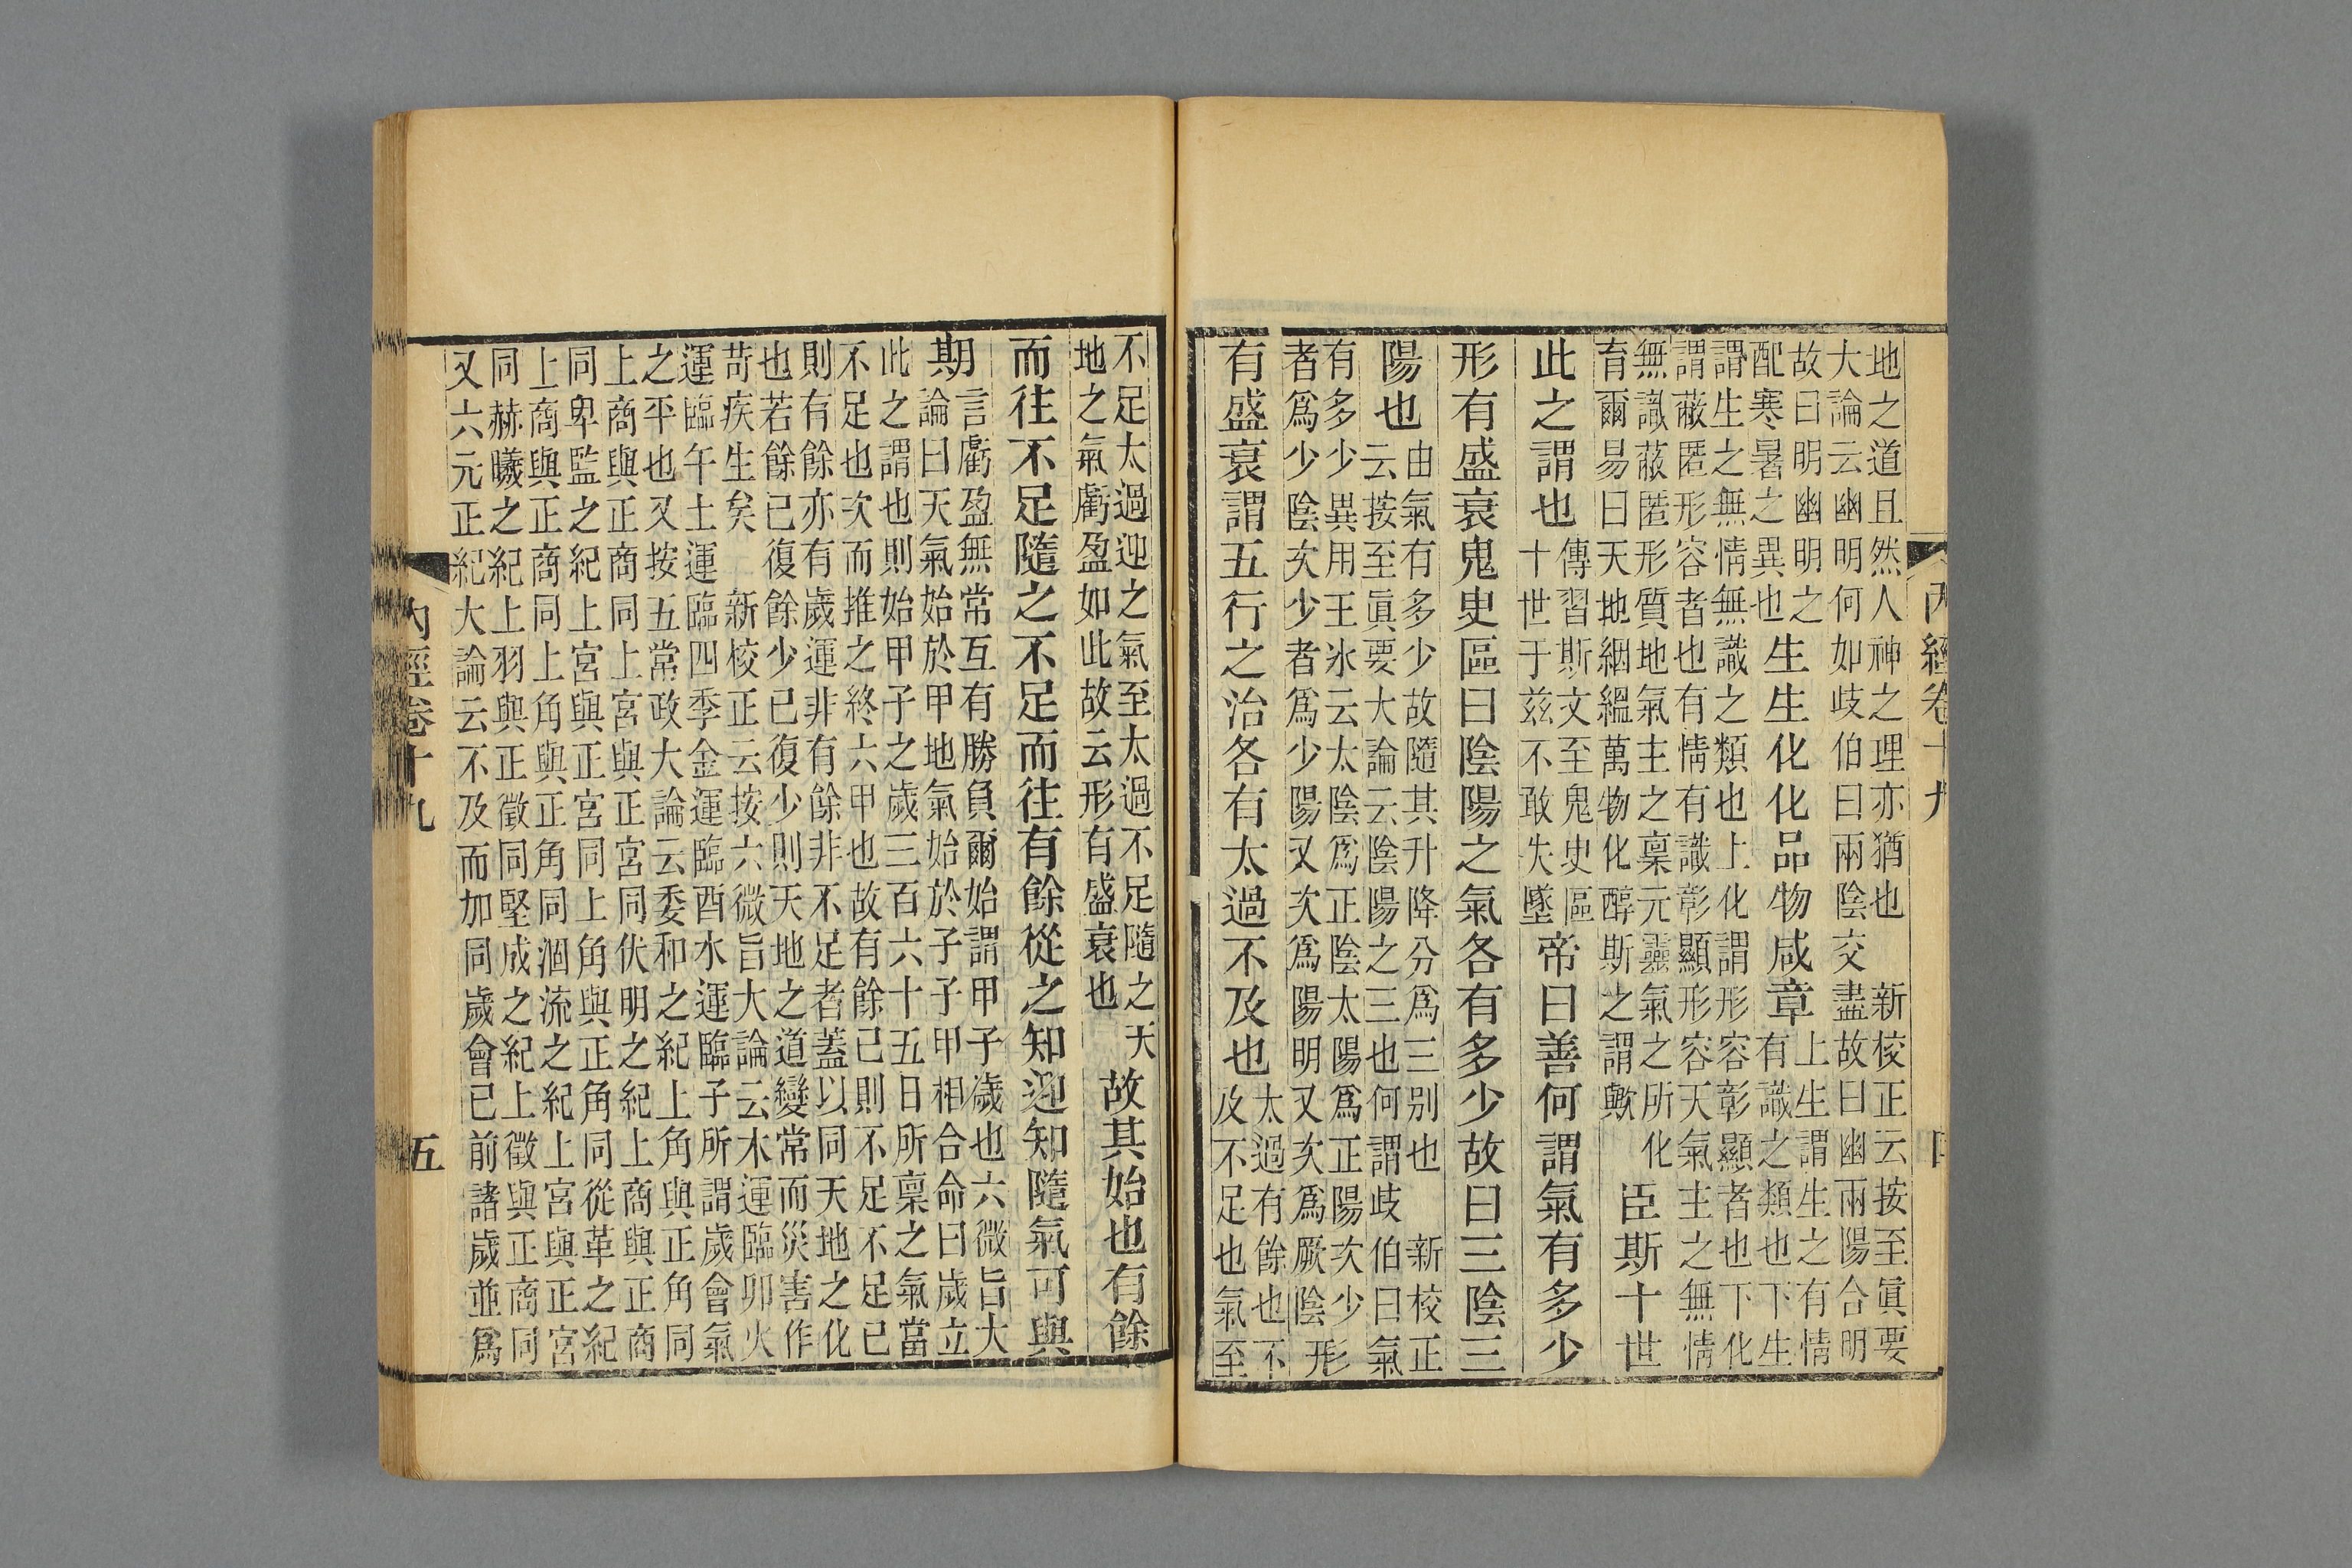 內經卷十九
地之道且然人神之理亦猶也　新校正云按至眞要
大論云幽明何如歧伯曰兩陰交盡故曰幽兩陽合明
故曰明幽明之
配寒暑之異也
生生化化品物咸章
上生謂生之有情
有識之類也下生
謂生之無情無識之類也上化謂形容彰顯者也下化
謂蔽匿形容者也有情有識彰顯形容天氣主之無情
無識蔽匿形質地氣主之稟元靈氣之所化
育爾易曰天地絪縕萬物化醇斯之謂歟
臣斯十世
此之謂也
傳習斯文至鬼史區
十世于茲不敢失墜
帝曰善何謂氣有多少
形有盛衰鬼史區曰陰陽之氣各有多少故曰三陰三
陽也
由氣有多少故隨其升降分爲三别也　新校正
云按至眞要大論云陰陽之三也何謂歧伯曰氣
有多少異用王冰云太陰爲正陰太陽爲正陽次少
者爲少陰次少者爲少陽又次爲陽明又次爲厥陰
形
有盛衰謂五行之治各有太過不及也
太過有餘也不
及不足也氣至
不足太過迎之氣至太過不足隨之天
地之氣虧盈如此故云形有盛衰也
故其始也有餘
而往不足隨之不足而往有餘從之知迎知隨氣可與
期
言虧盈無常互有勝負爾始謂甲子歲也六微旨大
論曰天氣始於甲地氣始於子子甲相合命曰歲立
此之謂也則始甲子之歲三百六十五日所稟之氣當
不足也次而推之終六甲也故有餘已則不足不足已
則有餘亦有歲運非有餘非不足者蓋以同天地之化
也若餘已復餘少已復少則天地之道變常而災害作
苛疾生矣　新校正云按六微旨大論云木運臨卯火
運臨午土運臨四季金運臨酉水運臨子所謂歲會氣
之平也又按五常政大論云委和之紀上角與正角同
上商與正商同上宮與正宮同伏明之紀上商與正商
同卑監之紀上宮與正宮同上角與正角同從革之紀
上商與正商同上角與正角同涸流之紀上宮與正宮
同赫曦之紀上羽與正徵同堅成之紀上徵與正商同
又六元正紀大論云不及而加同歲會已前諸歲並爲
內經卷十九
五